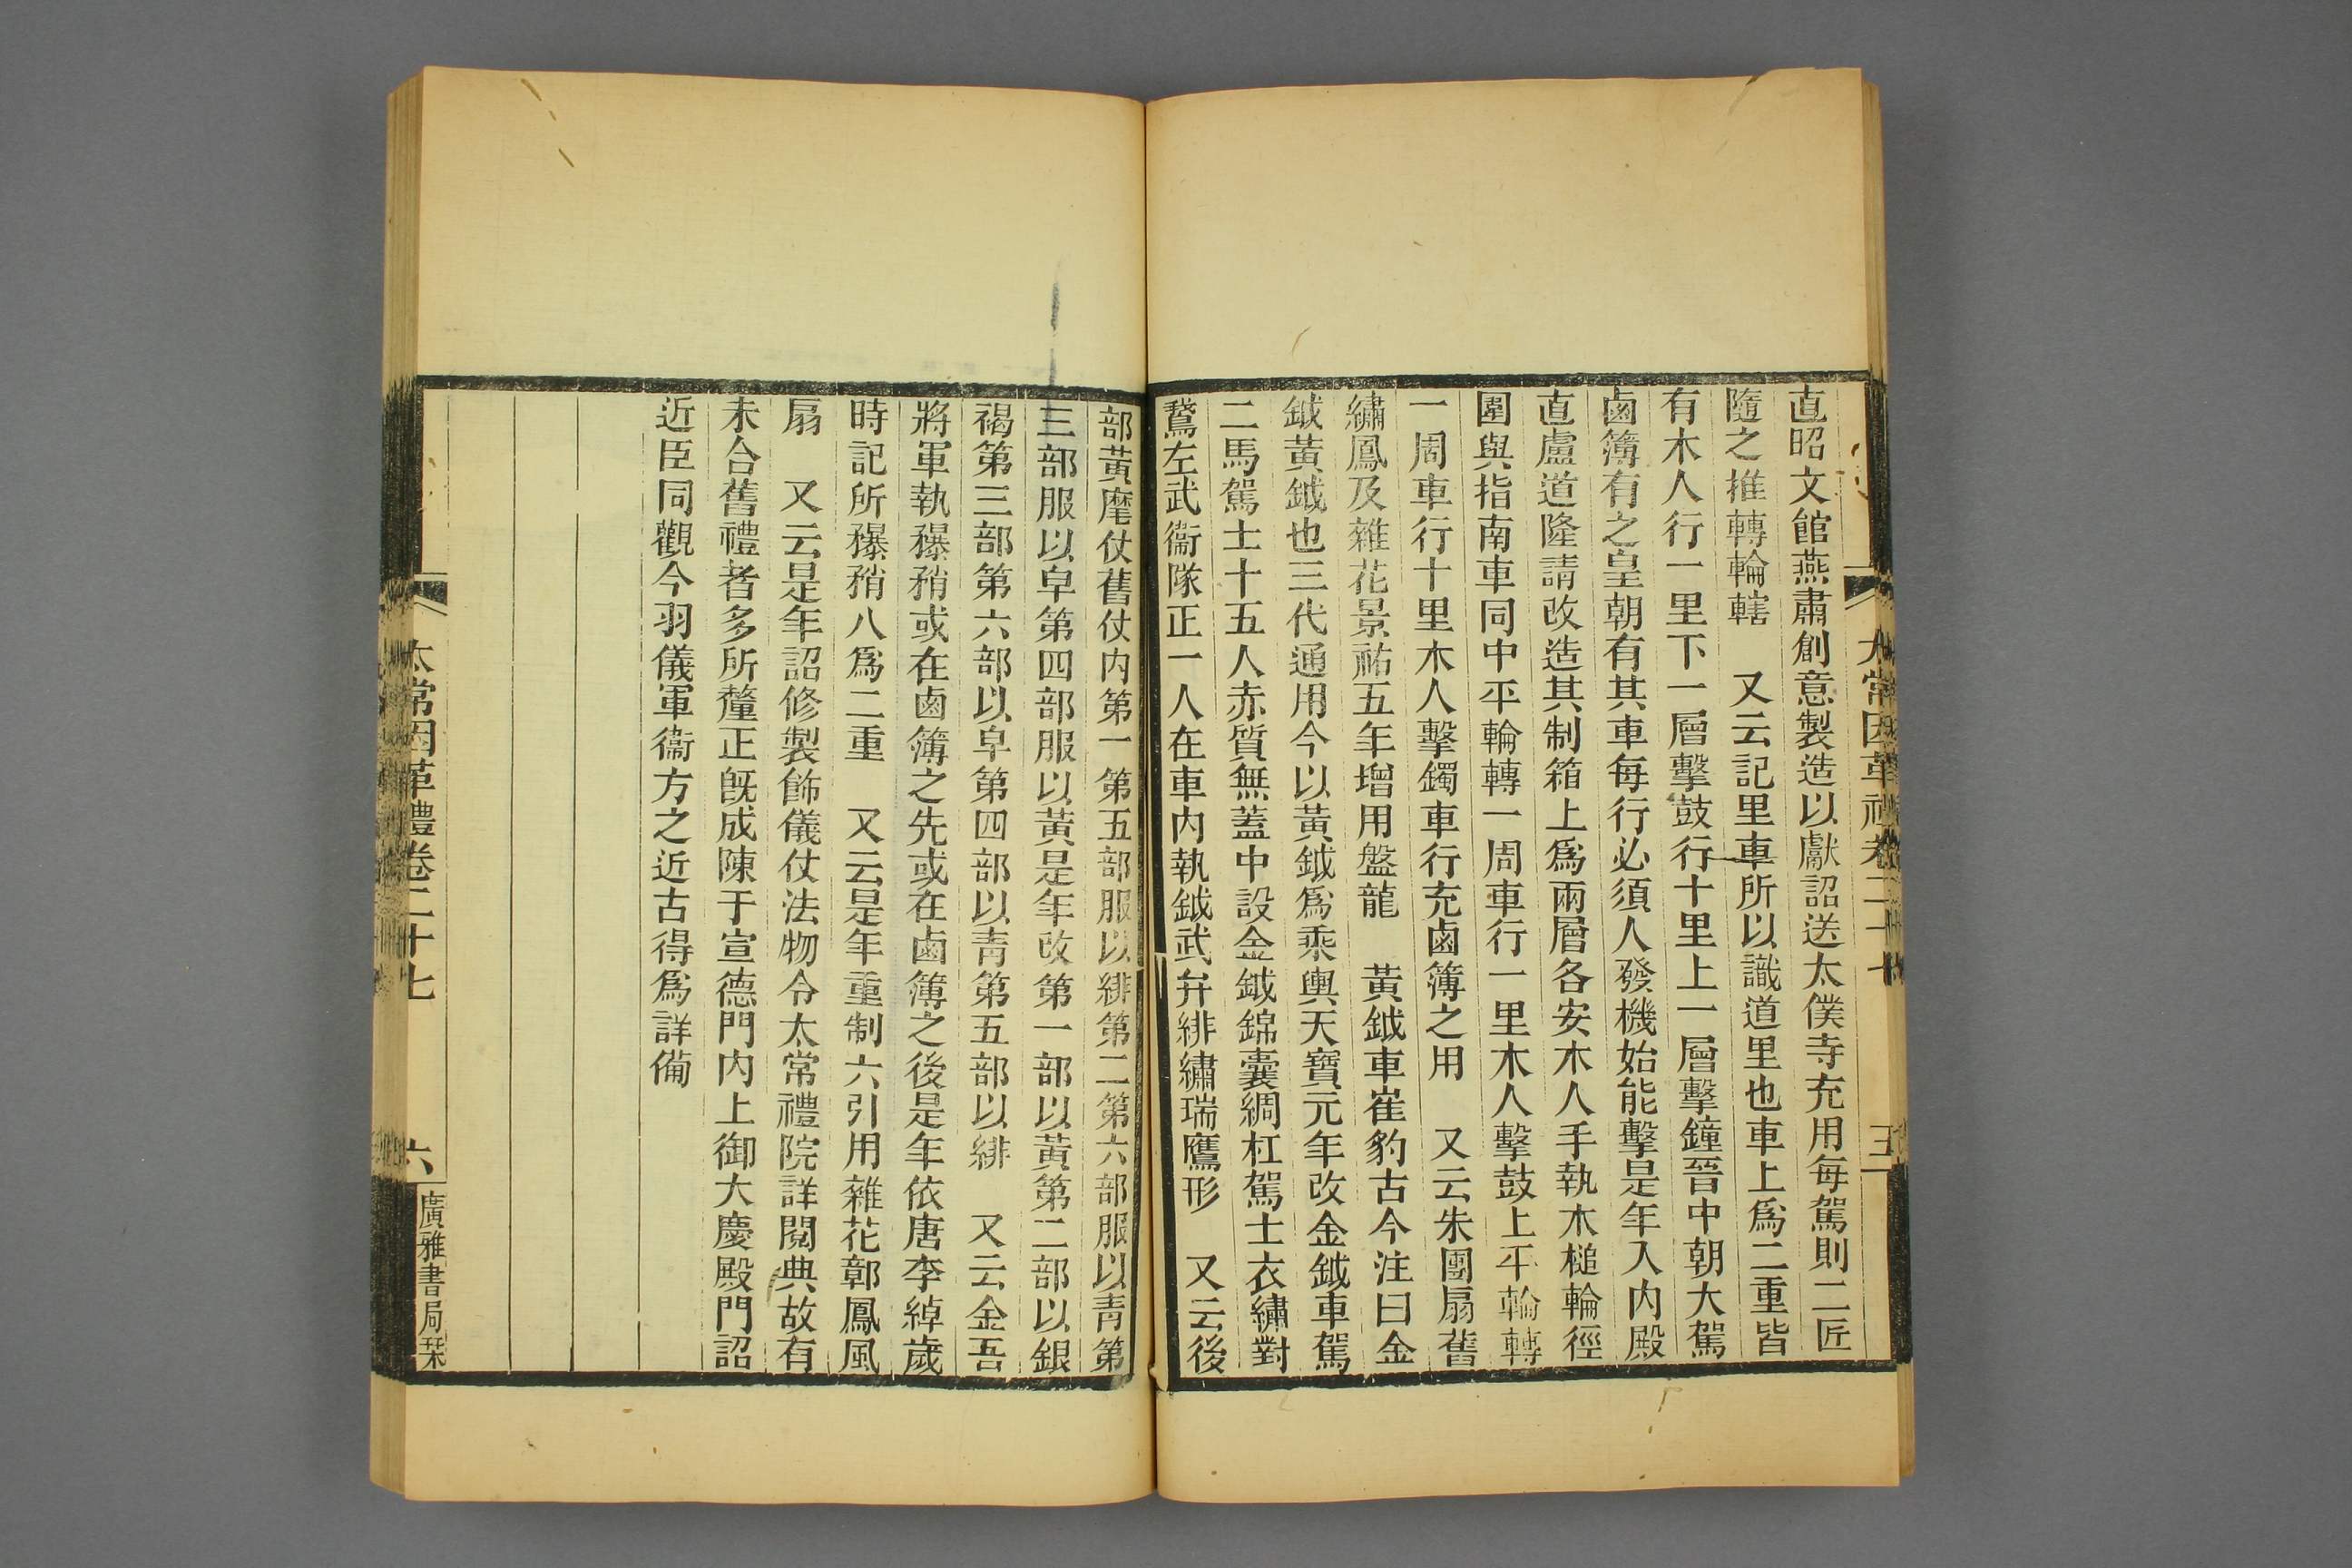 太常因革禮卷二十七
五
直昭文館燕肅創意製造以獻詔送太僕寺充用每駕則二匠
隨之推轉輪轄　又云記里車所以識道里也車上爲二重皆
有木人行一里下一層擊鼓行十里上一層擊鐘晉中朝大駕
鹵簿有之皇朝有其車每行必須人發機始能擊是年入內殿
直盧道隆請改造其制箱上爲兩層各安木人手執木槌輪徑
圍與指南車同中平輪轉一周車行一里木人擊鼓上平輪轉
一周車行十里木人擊鐲車行充鹵簿之用　又云朱團扇舊
繡鳳及雜花景祐五年增用盤龍　黃鉞車崔豹古今注曰金
鉞黃鉞也三代通用今以黃鉞爲乘輿天寶元年改金鉞車駕
二馬駕士十五人赤質無蓋中設金鉞錦囊綢杠駕士衣繡對
鵞左武衞隊正一人在車內執鉞武弁緋繡瑞鷹形　又云後
部黃麾仗舊仗內第一第五部服以緋第二第六部服以青第
三部服以皁第四部服以黃是年改第一部以黃第二部以銀
褐第三部第六部以皁第四部以青第五部以緋　又云金吾
將軍執穲矟或在鹵簿之先或在鹵簿之後是年依唐李綽歲
時記所穲矟八爲二重　又云是年重制六引用雜花鄣鳳風
扇　又云是年詔修製飾儀仗法物令太常禮院詳閱典故有
未合舊禮者多所釐正旣成陳于宣德門內上御大慶殿門詔
近臣同觀今羽儀軍衞方之近古得爲詳備
太常因革禮卷二十七
六
廣雅書局栞